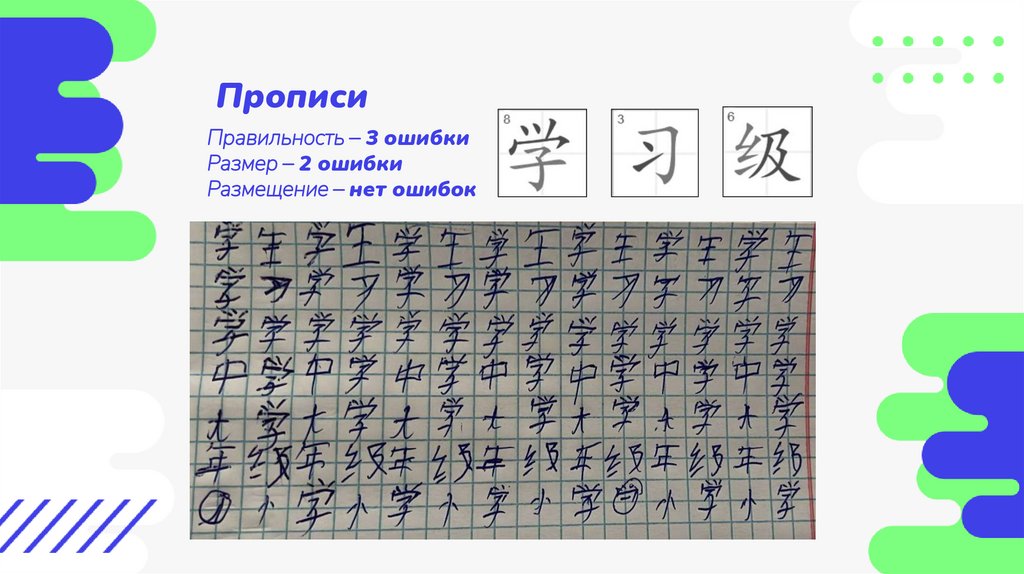 Прописи
Правильность – 3 ошибки
Размер – 2 ошибки
Размещение – нет ошибок
8 学 3 习 6 级
学生学生学生学生学生学生学生
学习学习学习学习学习学习学习
学学学学学学学学学学学学学学
中学中学中学中学中学中学中学
大学大学大学大学大学大学大学
年级年级年级年级年级年级年级
小学小学小学小学小学小学